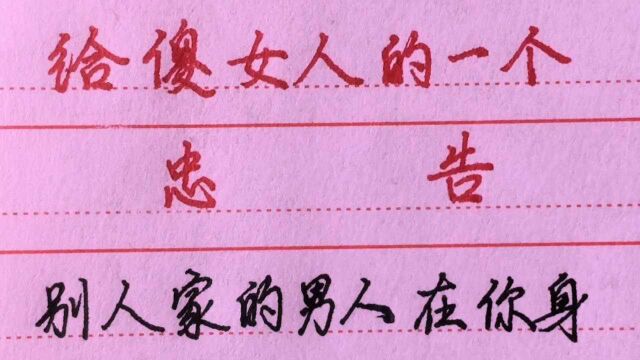 给傻女人的一个
忠告
别人家的男人在你身